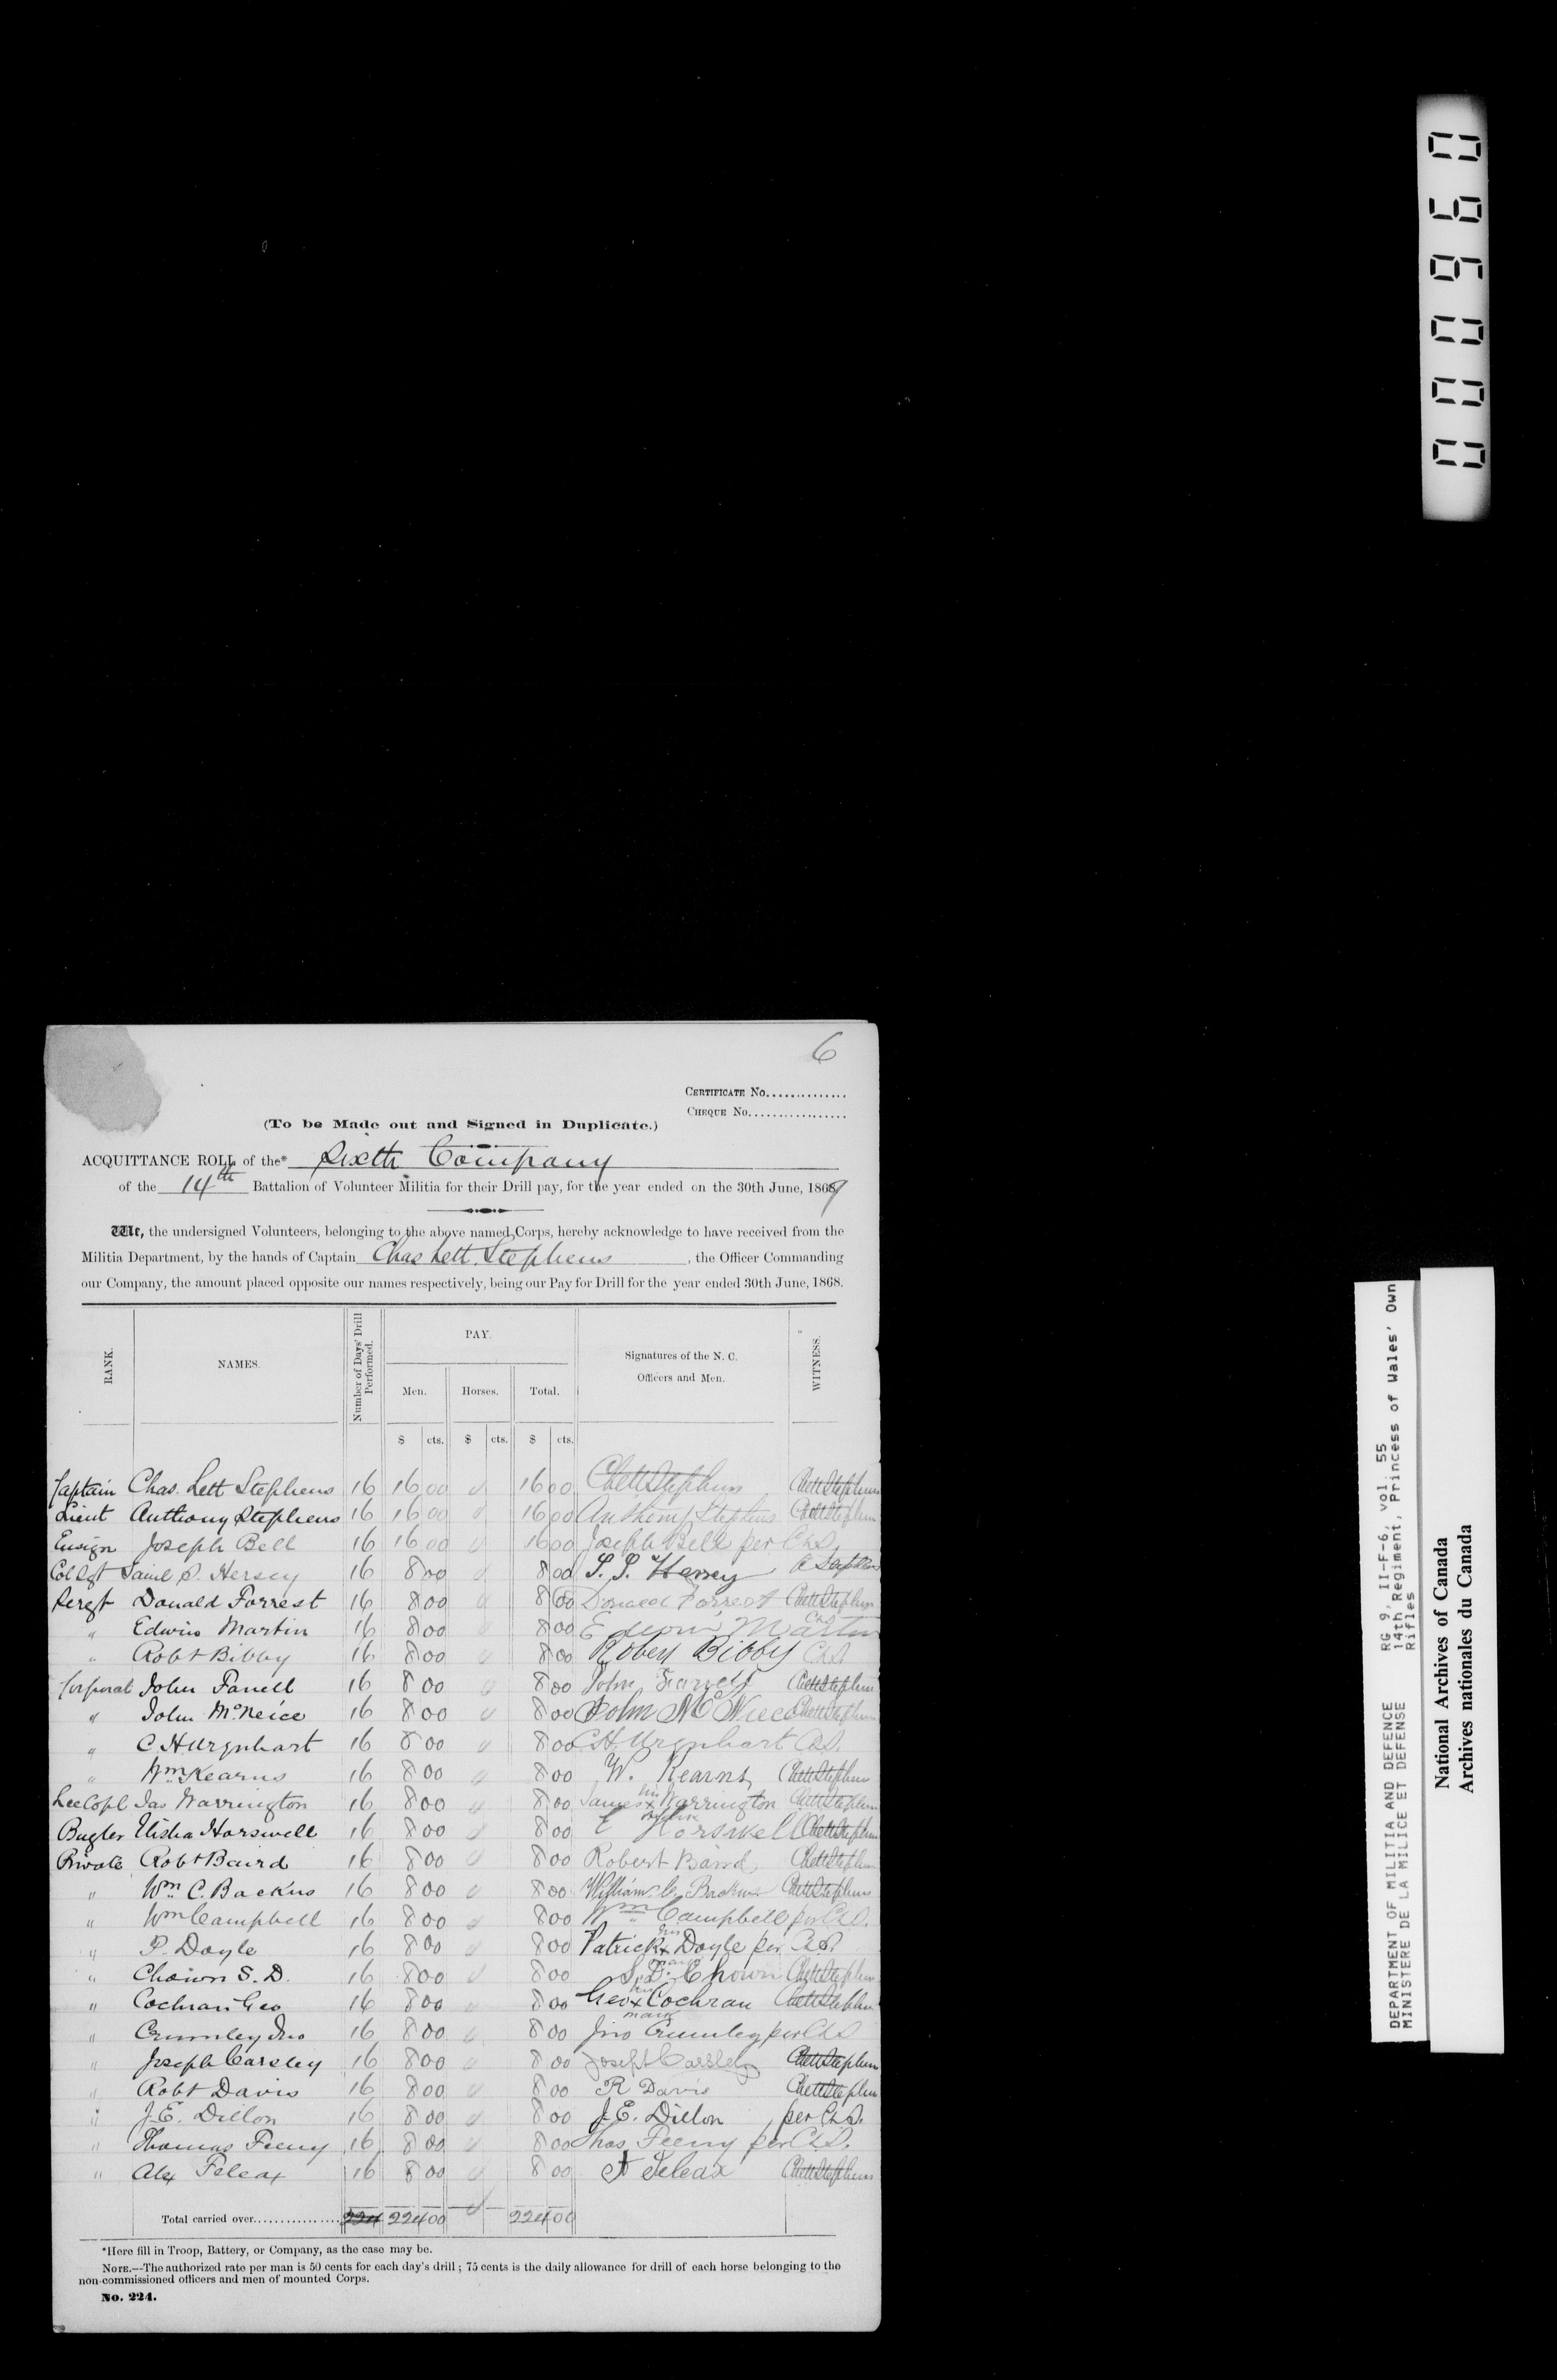 6
CERTIFICATE No..............
CHEQUE No.................
(To be Made out and Signed in Duplicate.)
ACQUITTANCE ROLL of the* Sixth Company
of the 14th Battalion of Volunteer Militia for their Drill pay, for the year ended on the 30th June, 1869
We, the undersigned Volunteers, belonging to the above named Corps, hereby acknowledge to have received from the
Militia Department, by the hands of Captain Chas Lett. Stephens, the Officer Commanding
our Company, the amount placed opposite our names respectively, being our Pay for Drill for the year ended 30th June, 1868.
RANK. NAMES. Number of Days' Drill Performed. PAY. Signatures of the N. C. Officers and Men. WITNESS.
Men. Horses. Total.
$ cts. $ cts. $ cts.
Captain Chas. Lett Stephens 16 16 00 16 00 CLett Stephens CLett Stephens
Lieut Anthony Stephens 16 16 00 16 00 Anthony Stephens CLett Stephens
Ensign Joseph Bell 16 16 00 16 00 Joseph Bell per C.L.S.
Col Sgt Saml S. Hersey 16 8 00 8 00 S. S. Hersey A Stephens
Sergt Donald Forrest 16 8 00 8 00 Donald Forrest CLett Stephens
" Edwin Martin 16 8 00 8 00 Edwin Martin C.L.S.
" Robt Bibby 16 8 00 8 00 Robert Bibby C.L.S.
Corporal John Farrell 16 8 00 8 00 John Farrell CLett Stephens
" John McNeice 16 8 00 8 00 John McNiece CLett Stephens
" C H Urquhart 16 8 00 8 00 C.H. Urquhart C.L.S.
" Wm Kearns 16 8 00 8 00 W. Kearns CLett Stephens
Lce Copl Jas Warrington 16 8 00 8 00 James his x mark Warrington CLett Stephens
Bugler Elisha Horswell 16 8 00 8 00 E Horswell CLett Stephens
Private Robt Baird 16 8 00 8 00 Robert Baird CLett Stephens
" Wm C. Backus 16 8 00 8 00 William C. Backus CLett Stephens
" Wm Campbell 16 8 00 8 00 Wm Campbell per C.L.S.
" P. Doyle 16 8 00 8 00 Patrick his x mark Doyle per C.L.S.
" Chown S. D. 16 8 00 8 00 S. D. Chown CLett Stephens
" Cochran Geo 16 8 00 8 00 Geo his x mark Cochran CLett Stephens
" Crumley Jno 16 8 00 8 00 Jno Crumley per C.L.S
" Joseph Carsley 16 8 00 8 00 Joseph Carsley CLett Stephens
" Robt Davis 16 8 00 8 00 R Davis CLett Stephens
" J.E. Dillon 16 8 00 8 00 J.E. Dillon per C.L.S.
" Thomas Feeny 16 8 00 8 00 Thos Feeny per C.L.S.
" Alex Feleax 16 8 00 8 00 A Feleax CLett Stephens
Total carried over............... 224 224 00 224 00
*Here fill in Troop, Battery, or Company, as the case may be.
NOTE.—The authorized rate per man is 50 cents for each day's drill; 75 cents is the daily allowance for drill of each horse belonging to the
non-commissioned officers and men of mounted Corps.
No. 224.
000960
DEPARTMENT OF MILITIA AND DEFENCE RG 9, II-F-6, vol. 55
MINISTERE DE LA MILICE ET DEFENSE 14th Regiment, Princess of Wales' Own
Rifles
National Archives of Canada
Archives nationales du Canada